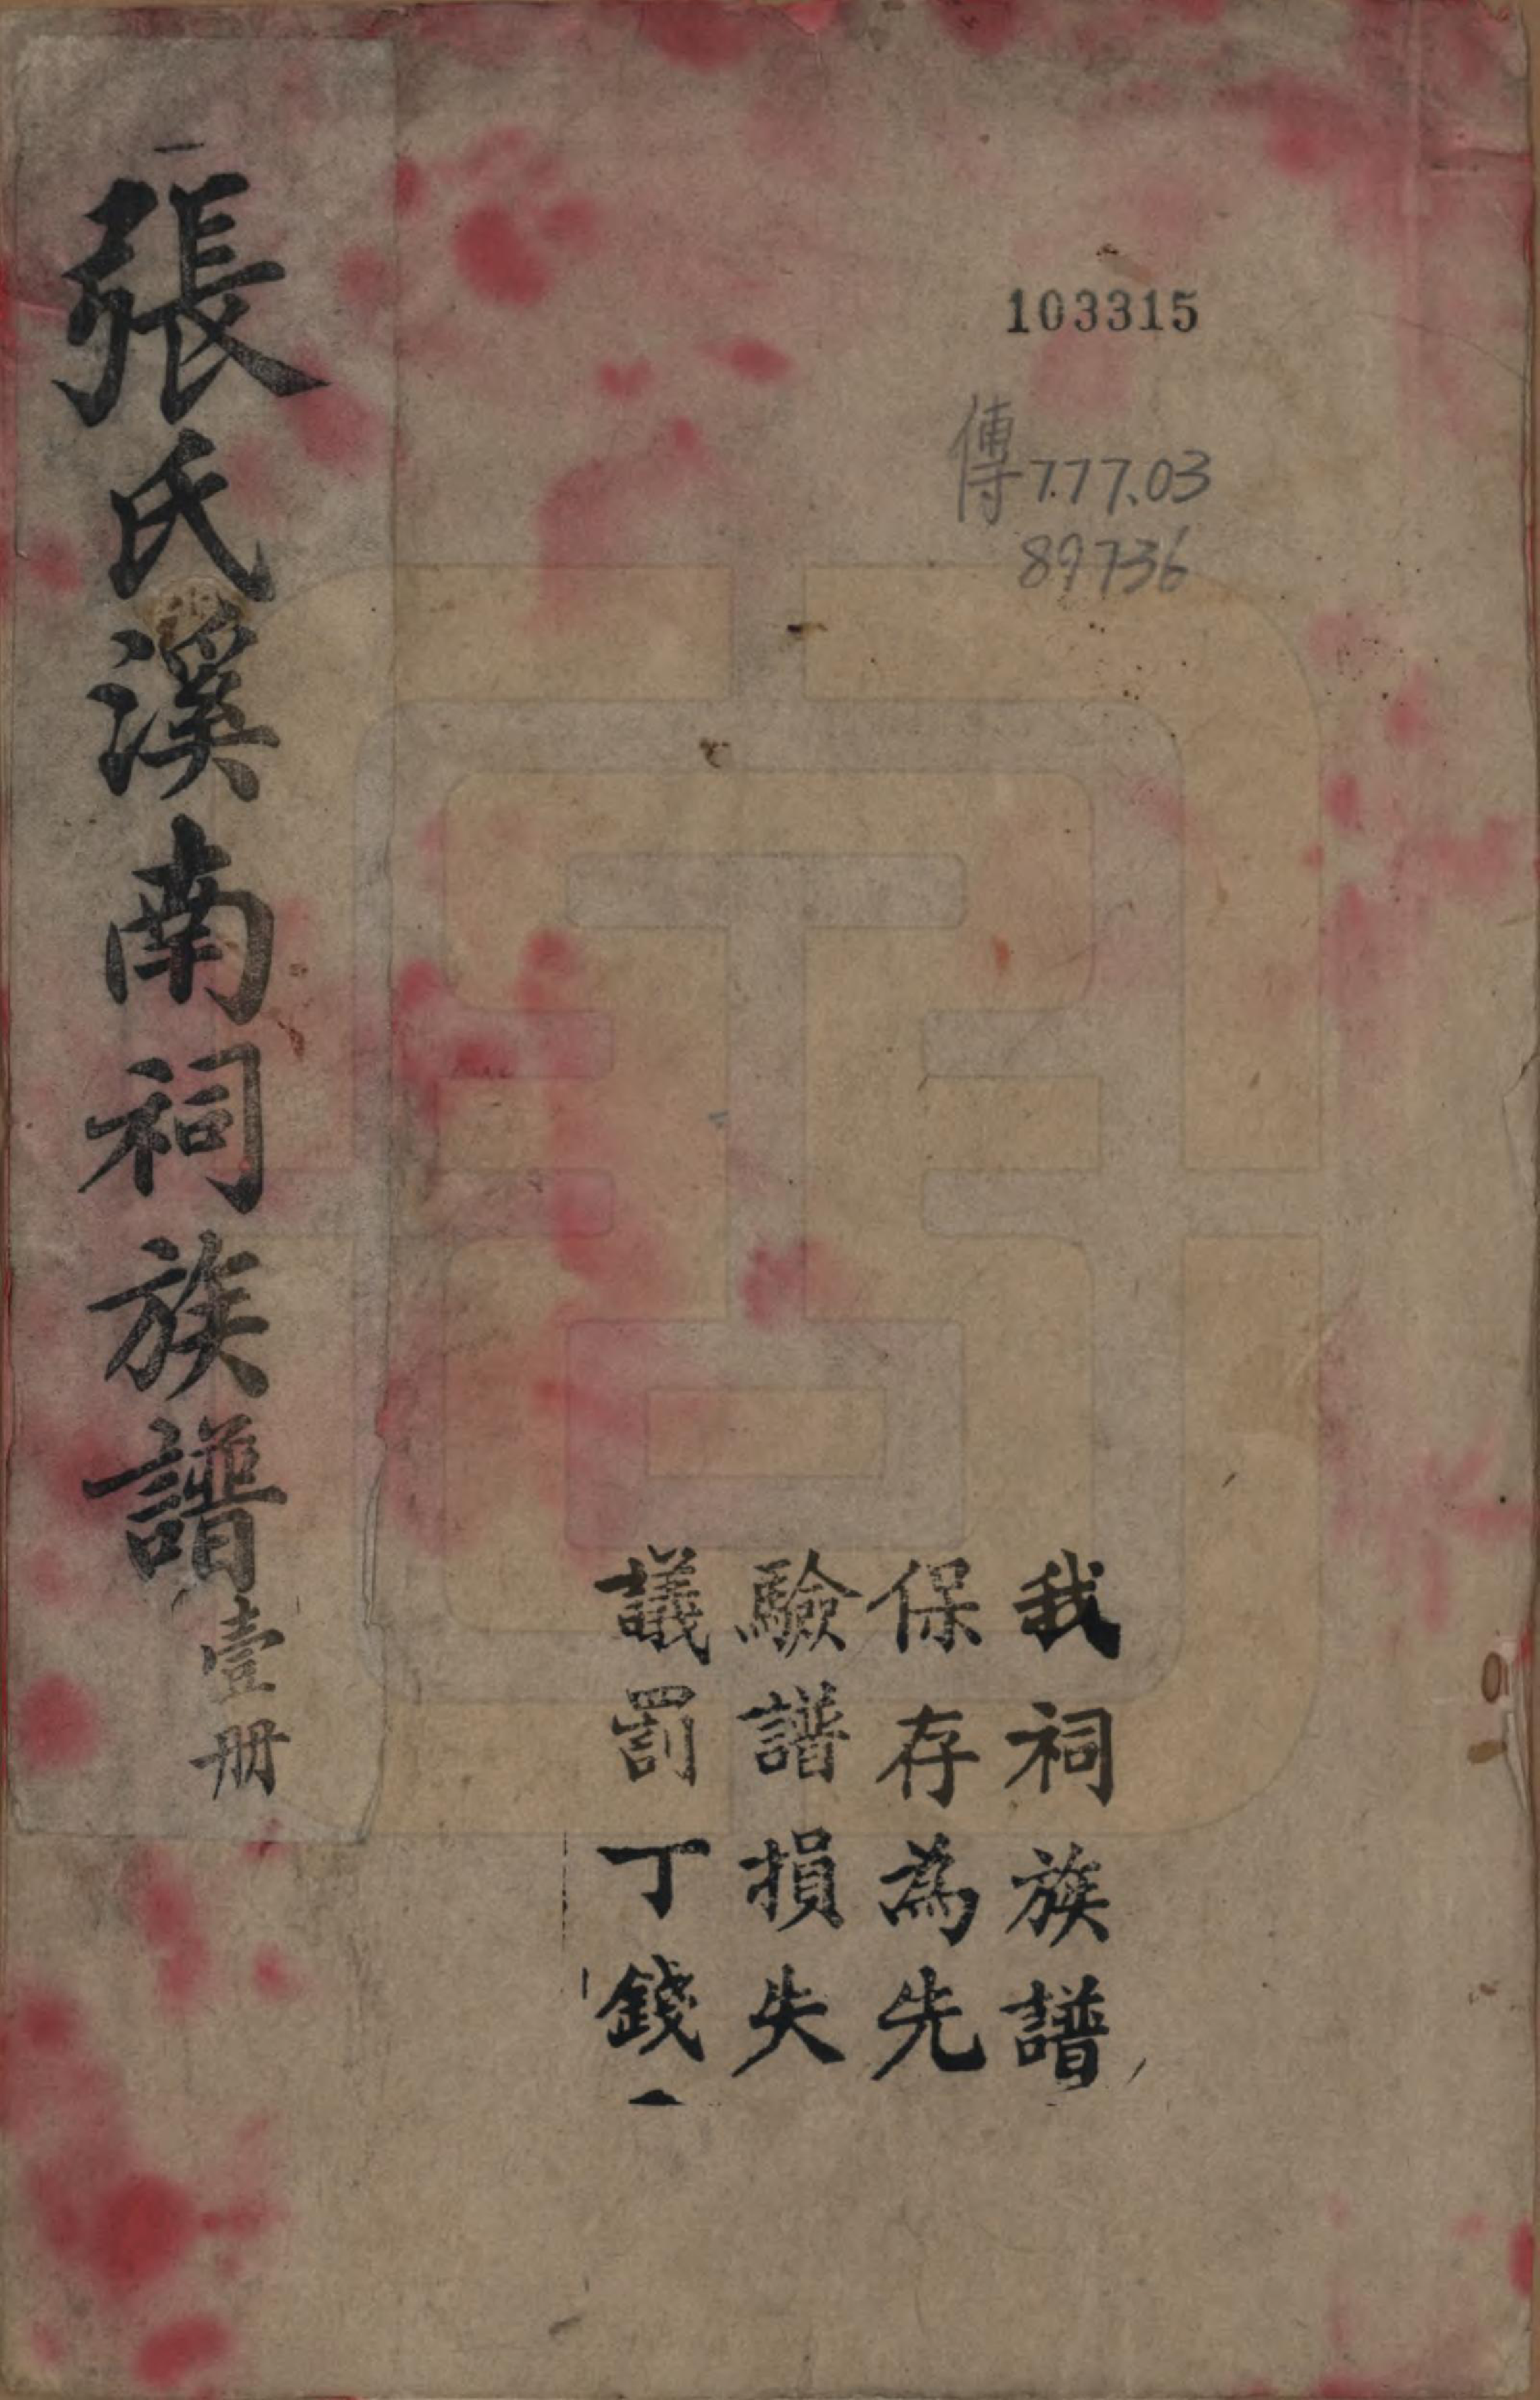 103315
傳777.03
89736
我祠族譜
保存為先
驗譜損失
議罰丁錢
張氏溪南祠族譜壹册